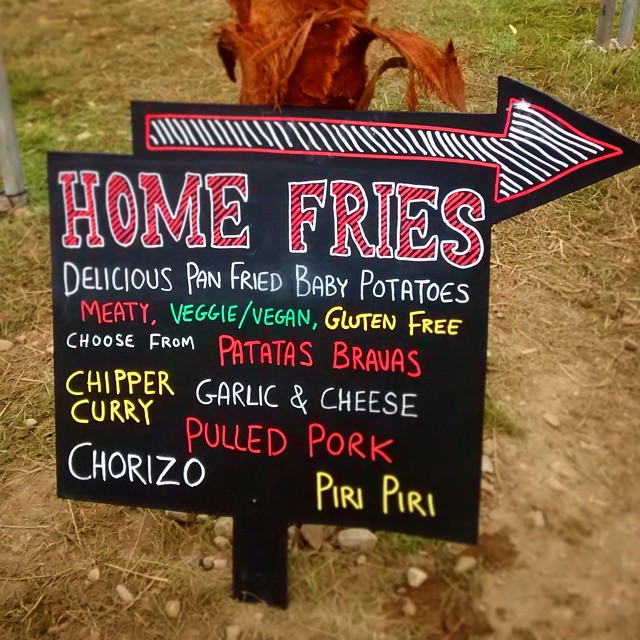 HOME FRIES
DELICIOUS PAN FRIED BABY POTATOES
MEATY, VEGGIE/VEGAN, GLUTEN FREE
CHOOSE FROM PATATAS BRAVAS
CHIPPER CURRY
GARLIC & CHEESE
PULLED PORK
CHORIZO
PIRI PIRI